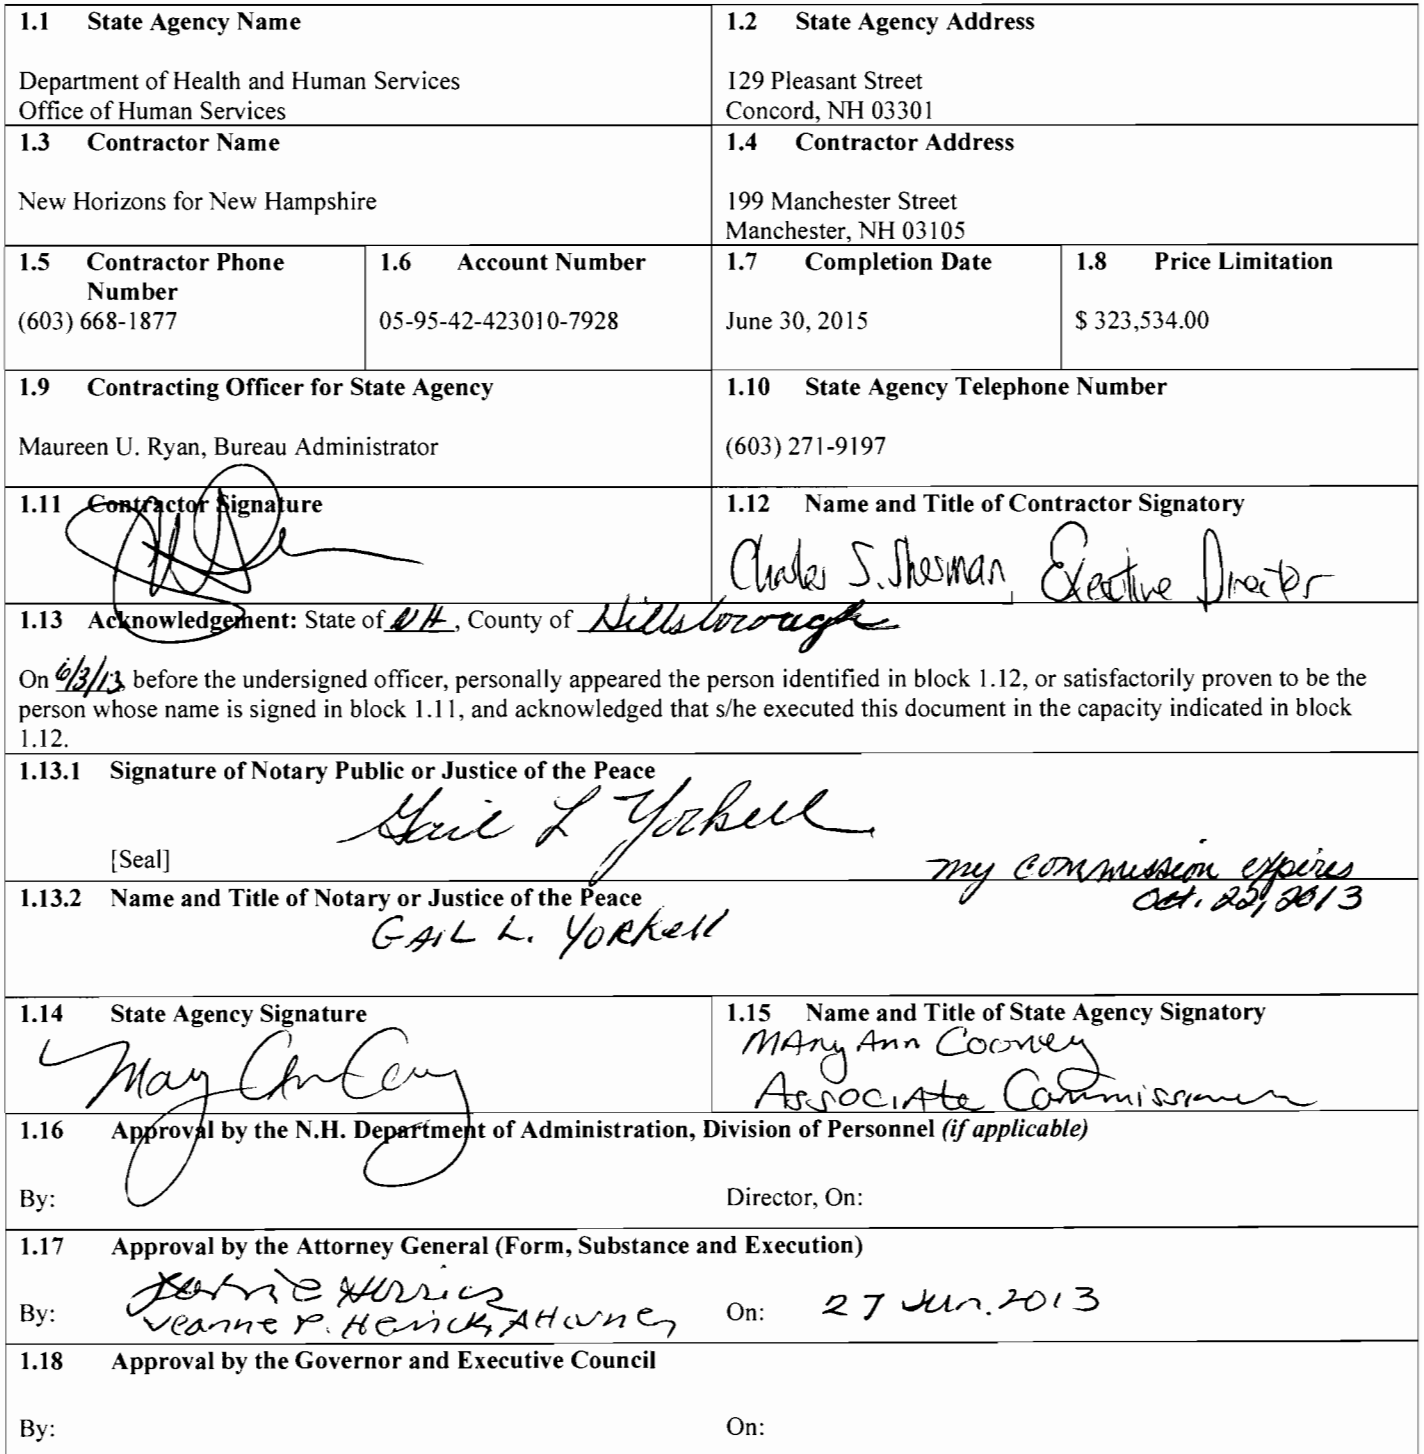 1.1 State Agency Name
Department of Health and Human Services
Office of Human Services
1.2 State Agency Address
129 Pleasant Street
Concord, NH 03301
1.3 Contractor Name
New Horizons for New Hampshire
1.4 Contractor Address
199 Manchester Street
Manchester, NH 03105
1.5 Contractor Phone
Number
(603) 668-1877
1.6 Account Number
05-95-42-423010-7928
1.7 Completion Date
June 30, 2015
1.8 Price Limitation
$ 323,534.00
1.9 Contracting Officer for State Agency
Maureen U. Ryan, Bureau Administrator
1.10 State Agency Telephone Number
(603) 271-9197
1.11 Contractor Signature
1.12 Name and Title of Contractor Signatory
Charles S. Sherman, Executive Director
1.13 Acknowledgement: State of NH, County of Hillsborough
On 6/3/13, before the undersigned officer, personally appeared the person identified in block 1.12, or satisfactorily proven to be the
person whose name is signed in block 1.11, and acknowledged that s/he executed this document in the capacity indicated in block
1.12.
1.13.1 Signature of Notary Public or Justice of the Peace
Gail L Yorkell
[Seal]
my commission expires
Oct. 22, 2013
1.13.2 Name and Title of Notary or Justice of the Peace
GAIL L. Yorkell
1.14 State Agency Signature
1.15 Name and Title of State Agency Signatory
MAry Ann Cooney
Associate Commissioner
1.16 Approval by the N.H. Department of Administration, Division of Personnel (if applicable)
By:
Director, On:
1.17 Approval by the Attorney General (Form, Substance and Execution)
By: Jeanne P. Herrick, Attorney
On: 27 Jun. 2013
1.18 Approval by the Governor and Executive Council
By:
On: